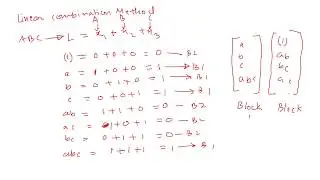 Linear Combination Method
A B C
ABC → L = x1 + x2 + x3
(1) = 0 + 0 + 0 = 0 — B2
a = 1 + 0 + 0 = 1 → B1
b = 0 + 1 + 0 = 1 → B1
c = 0 + 0 + 1 = 1 → B1
ab = 1 + 1 + 0 = 0 — B2
ac = 1 + 0 + 1 = 0 — B2
bc = 0 + 1 + 1 = 0 — B2
abc = 1 + 1 + 1 = 1 → B1
a
b
c
abc
Block
1
(1)
ab
bc
ac
Block